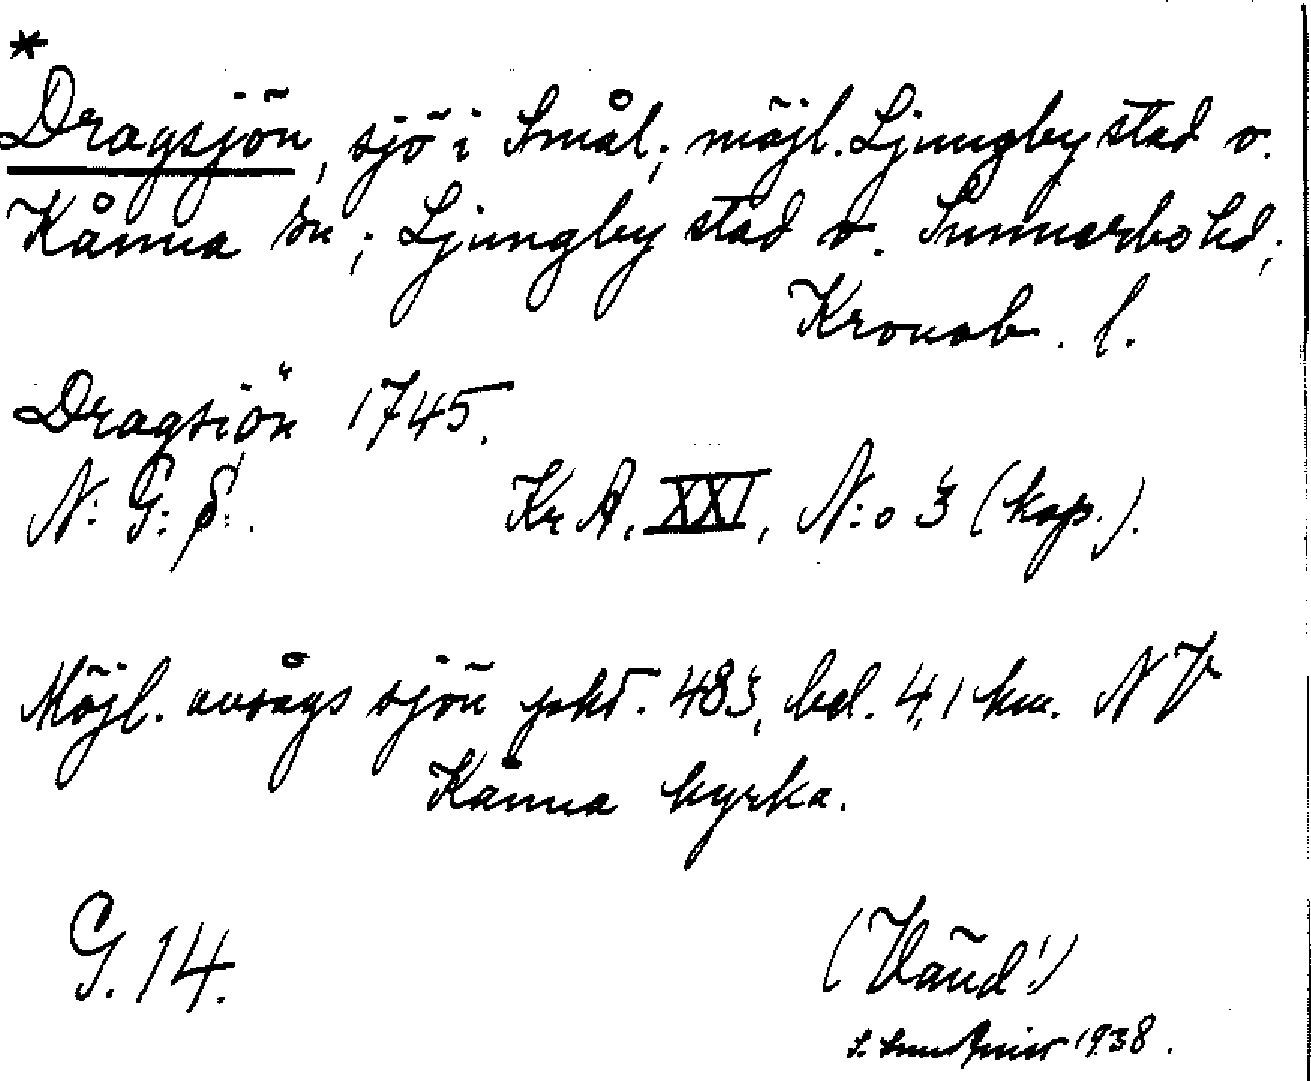 *
Dragsjön, sjö i Smål; möjl. Ljungby stad o.
Kånna sn; Ljungby stad o. Sunnerbo hd;
Kronob. l.
Dragsiön 1745.
N: G: S:.
Kr A, XXI, N:o 3 (kop.).
Möjl. avsågs sjön pkt. 483, bel. 4,1 km. NV
Kånna kyrka.
G. 14.
(Vänd!)
1938.